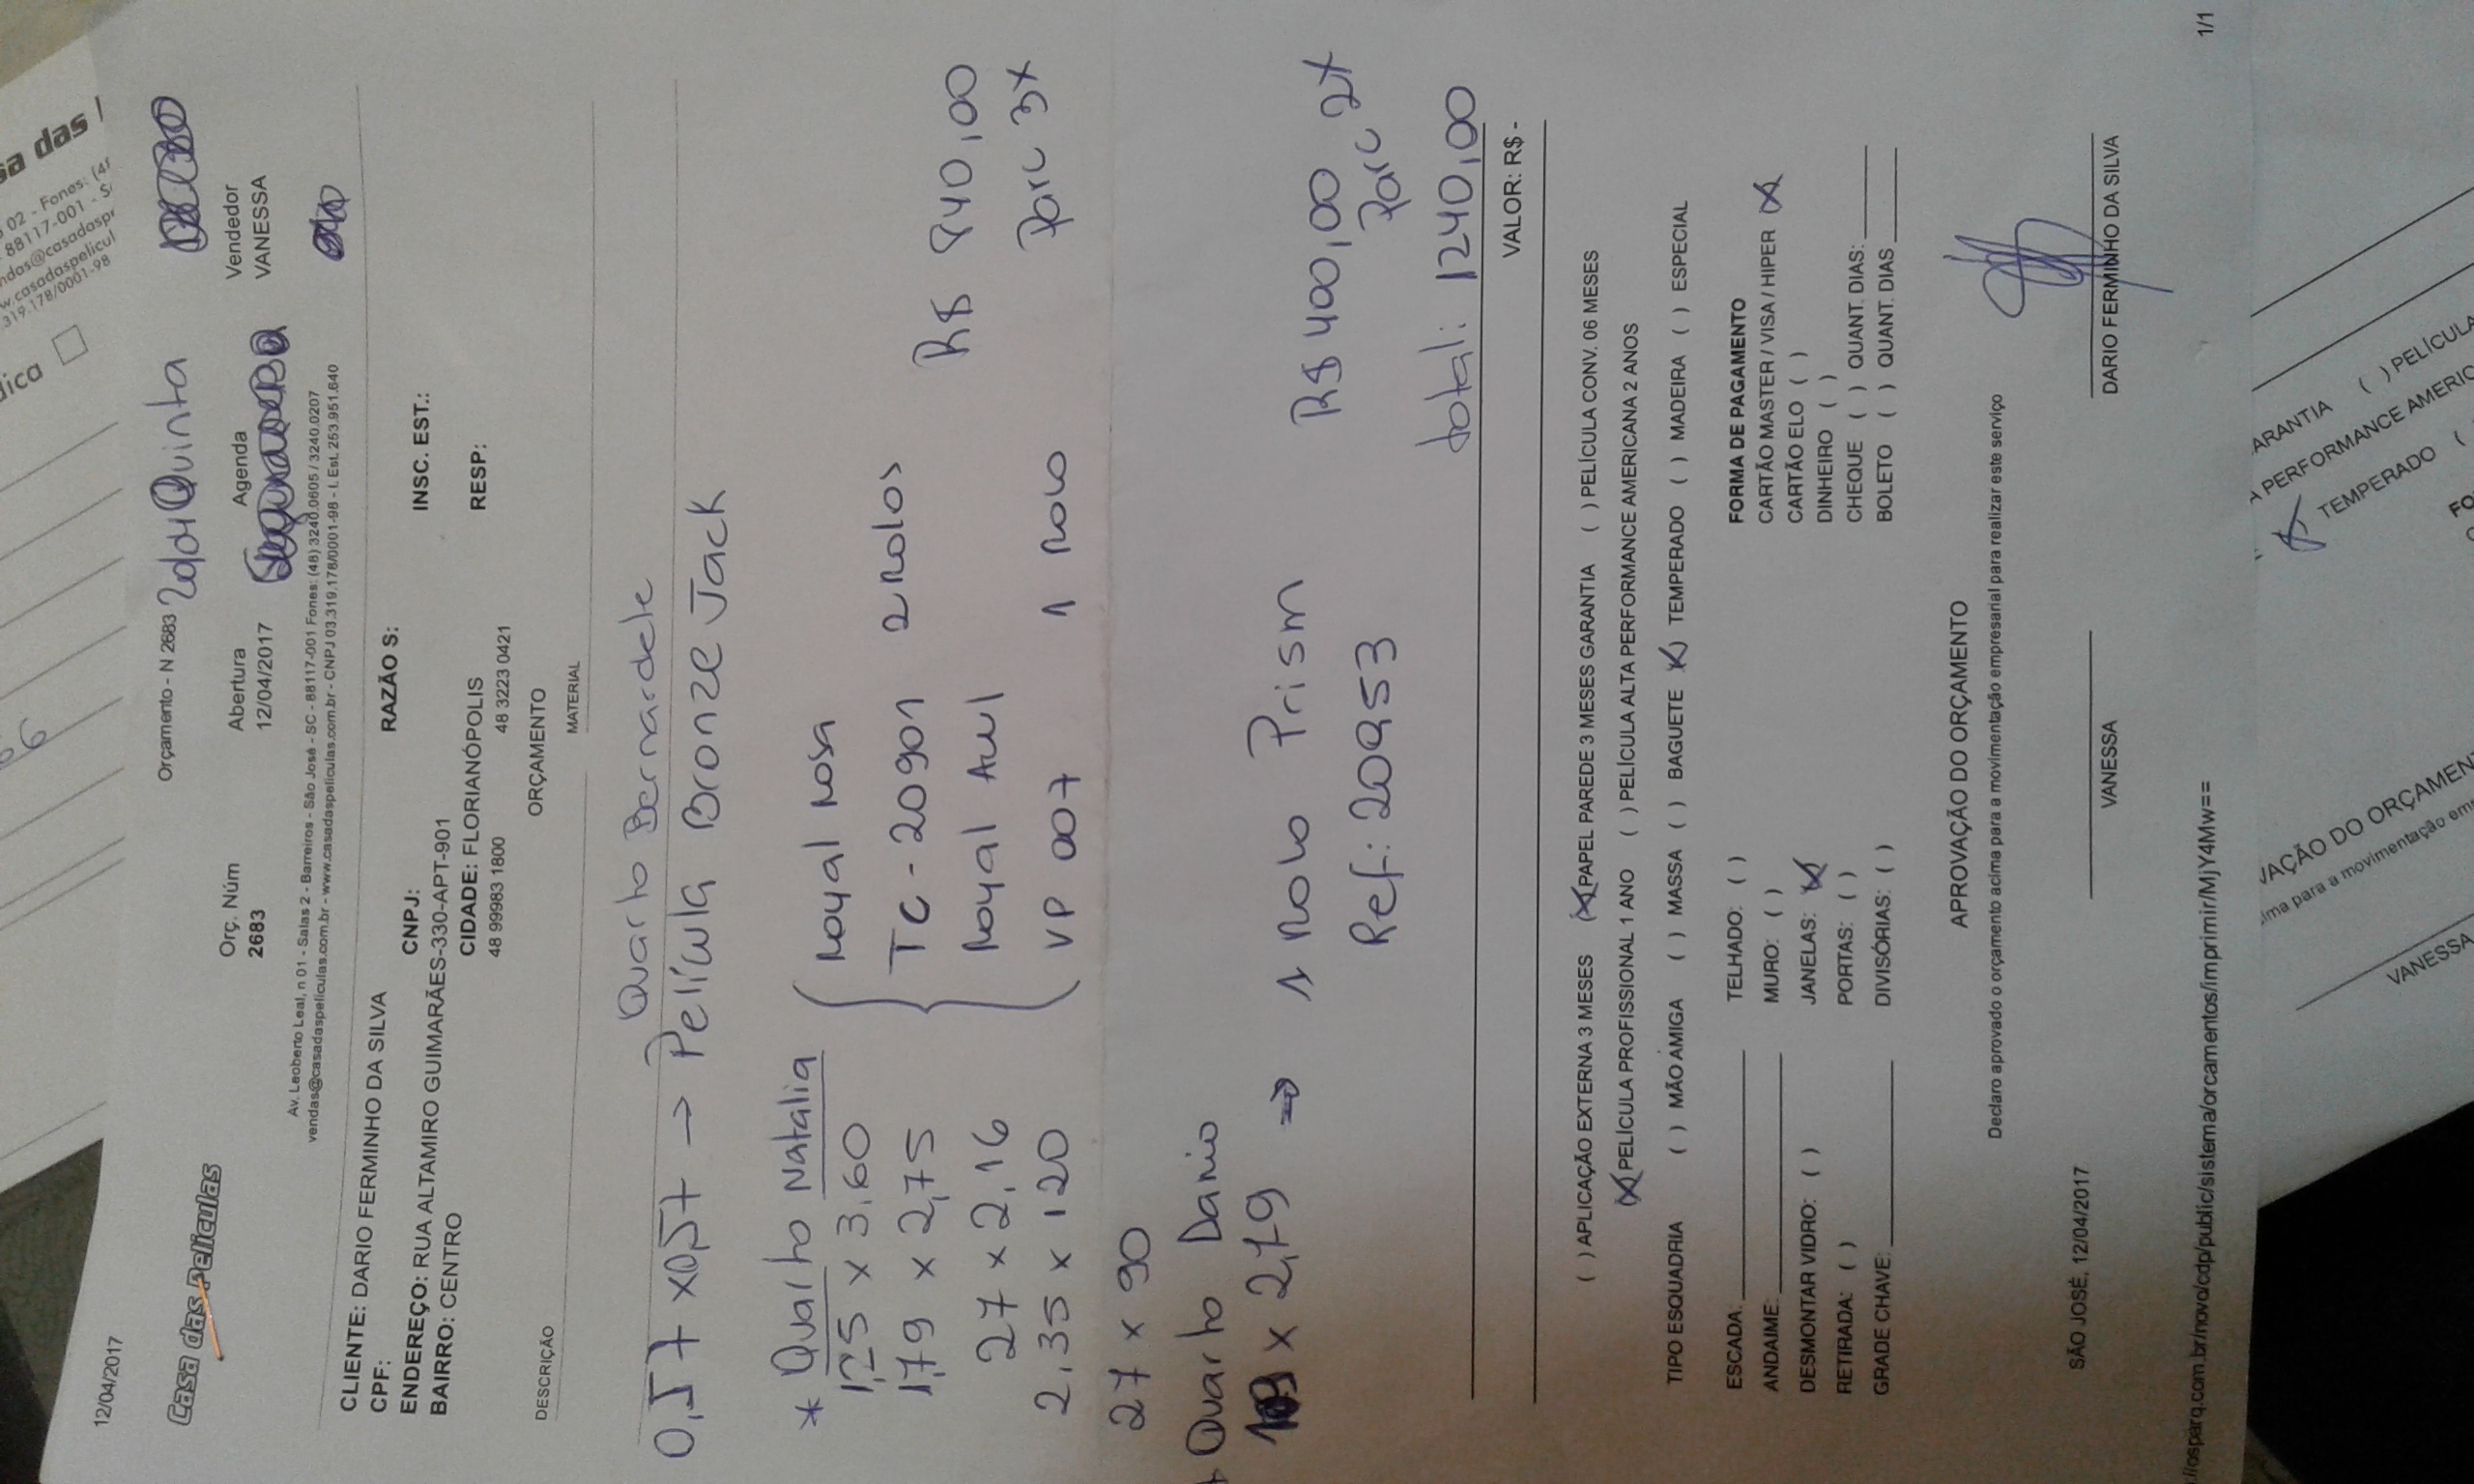 12/04/2017
Casa das Películas
Orçamento - N 2683 20/04 Quinta
Orç. Núm Abertura Agenda Vendedor
2683 12/04/2017 VANESSA
Av. Leoberto Leal, n 01 - Salas 2 - Barreiros - São José - SC - 88117-001 Fones: (48) 3240.0605 / 3240.0207
vendas@casadaspeliculas.com.br - www.casadaspeliculas.com.br - CNPJ 03.319.178/0001-98 - I. Est. 253.951.640
CLIENTE: DARIO FERMINHO DA SILVA RAZÃO S:
CPF: CNPJ: INSC. EST.:
ENDEREÇO: RUA ALTAMIRO GUIMARÃES-330-APT-901
BAIRRO: CENTRO CIDADE: FLORIANÓPOLIS RESP:
48 99983 1800 48 3223 0421
ORÇAMENTO
DESCRIÇÃO MATERIAL
Quarto Bernardete
0,57 x 0,57 → Película Bronze Jack
* Quarto Natalia
1,25 x 3,60 Royal Rosa
1,79 x 2,75 TC-20901 2 Rolos R$ 840,00
27 x 2,16 Royal Azul Parc 3x
2,35 x 120 VP 007 1 Rolo
27 x 90
Quarto Dario
x 2,79 → 1 Rolo Prism R$ 400,00
Ref.: 20953 Parc 2x
total: 1240,00
VALOR: R$ -
( ) APLICAÇÃO EXTERNA 3 MESES (X) PAPEL PAREDE 3 MESES GARANTIA ( ) PELÍCULA CONV. 06 MESES
(X) PELÍCULA PROFISSIONAL 1 ANO ( ) PELÍCULA ALTA PERFORMANCE AMERICANA 2 ANOS
TIPO ESQUADRIA ( ) MÃO AMIGA ( ) MASSA ( ) BAGUETE (X) TEMPERADO ( ) MADEIRA ( ) ESPECIAL
ESCADA: TELHADO: ( ) FORMA DE PAGAMENTO
ANDAIME: MURO: ( ) CARTÃO MASTER / VISA / HIPER (X)
DESMONTAR VIDRO: ( ) JANELAS: (X) CARTÃO ELO ( )
RETIRADA: ( ) PORTAS: ( ) DINHEIRO ( )
GRADE CHAVE: DIVISÓRIAS: ( ) CHEQUE ( ) QUANT. DIAS:
BOLETO ( ) QUANT. DIAS
APROVAÇÃO DO ORÇAMENTO
Declaro aprovado o orçamento acima para a movimentação empresarial para realizar este serviço
SÃO JOSÉ, 12/04/2017
VANESSA DARIO FERMINHO DA SILVA
//osparq.com.br/novo/cdp/public/sistema/orcamentos/imprimir/MjY4Mw== 1/1
sa das
02 - Fones: (4
88117-001 - S
ndas@casadasp
w.casadaspelicul
319.178/0001-98
dica
ARANTIA ( ) PELÍCULA
A PERFORMANCE AMERIC
TEMPERADO (
FO
VAÇÃO DO ORÇAMEN
ima para a movimentação em
VANESSA